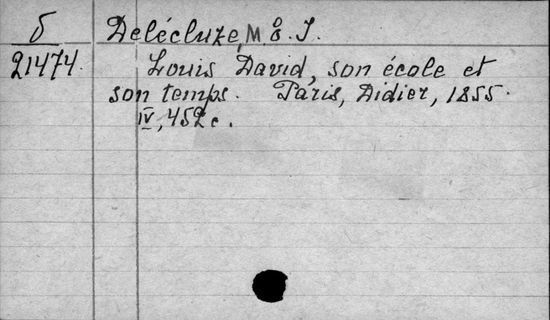 δ Delécluze, M E. J.
21474. Louis David, son école et
son temps. Paris, Didier, 1855.
IV, 452 c.